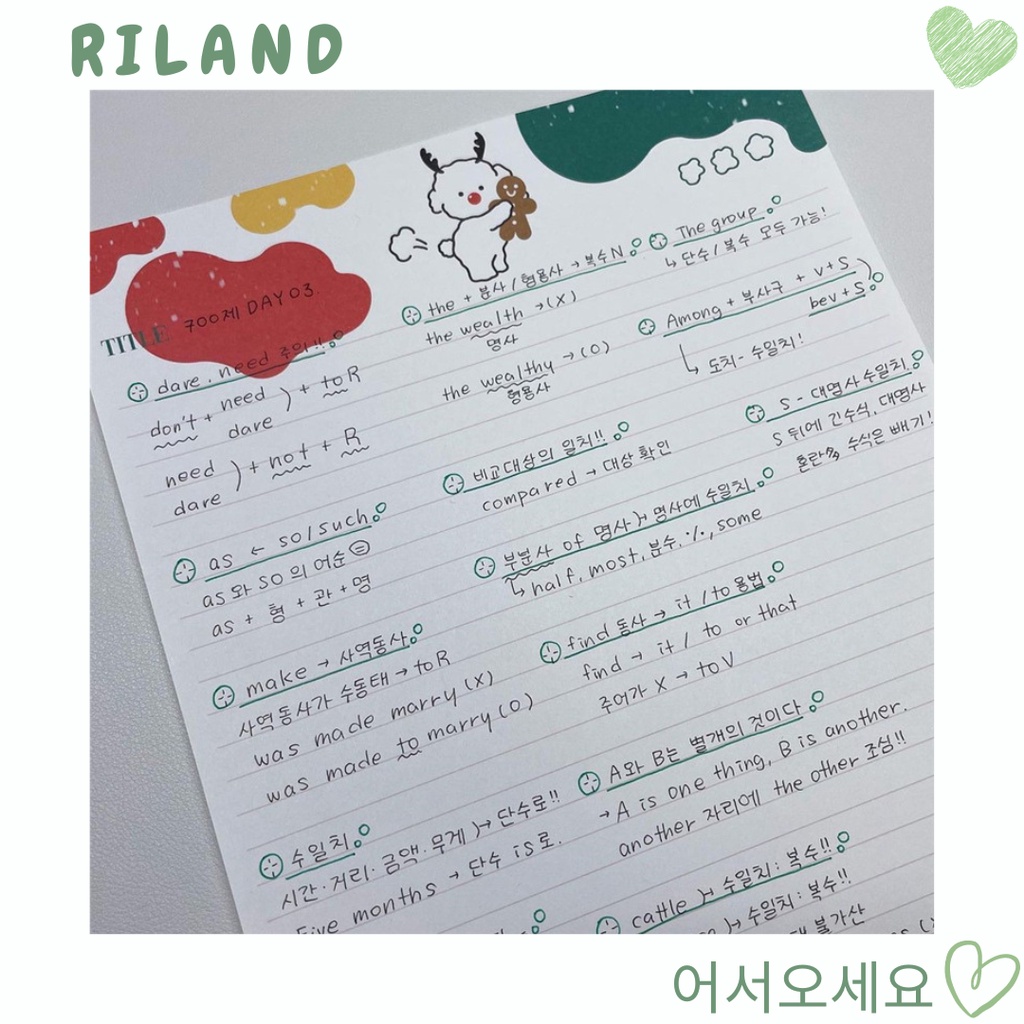 RILAND
700제 DAY 03.
TITLE
dare, need 주의!!
don't + need
dare ) + to R
need
dare ) + not + R
as ← so/such
as와 so의 어순
as + 형 + 관 + 명
make → 사역동사
사역동사가 수동태 → to R
was made marry (X)
was made to marry (O)
수일치
시간·거리·금액·무게 )→ 단수로!!
Five months → 단수 is로.
the + 분사/형용사 → 복수N
the wealth → (X)
명사
the wealthy → (O)
형용사
비교대상의 일치!!
compared → 대상 확인
부분사 of 명사 )→ 명사에 수일치
↳ half, most, 분수, %, some
find 동사 → it / to 용법
find → it / to or that
주어가 X → to V
A와 B는 별개의 것이다
→ A is one thing, B is another.
another 자리에 the other 조심!!
cattle )→ 수일치: 복수!!
)→ 수일치: 복수!!
불가산
The group
↳ 단수/복수 모두 가능!
Among + 부사구 + V+S )
bev+S
↳ 도치- 수일치!
S - 대명사 수일치
S 뒤에 긴수식, 대명사
혼란 수식은 빼기!
어서오세요